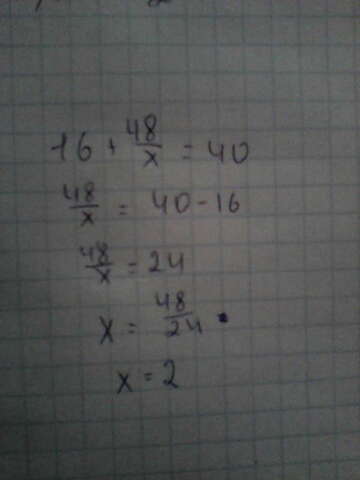 16 + 48/x = 40
48/x = 40 - 16
48/x = 24
x = 48/24
x = 2